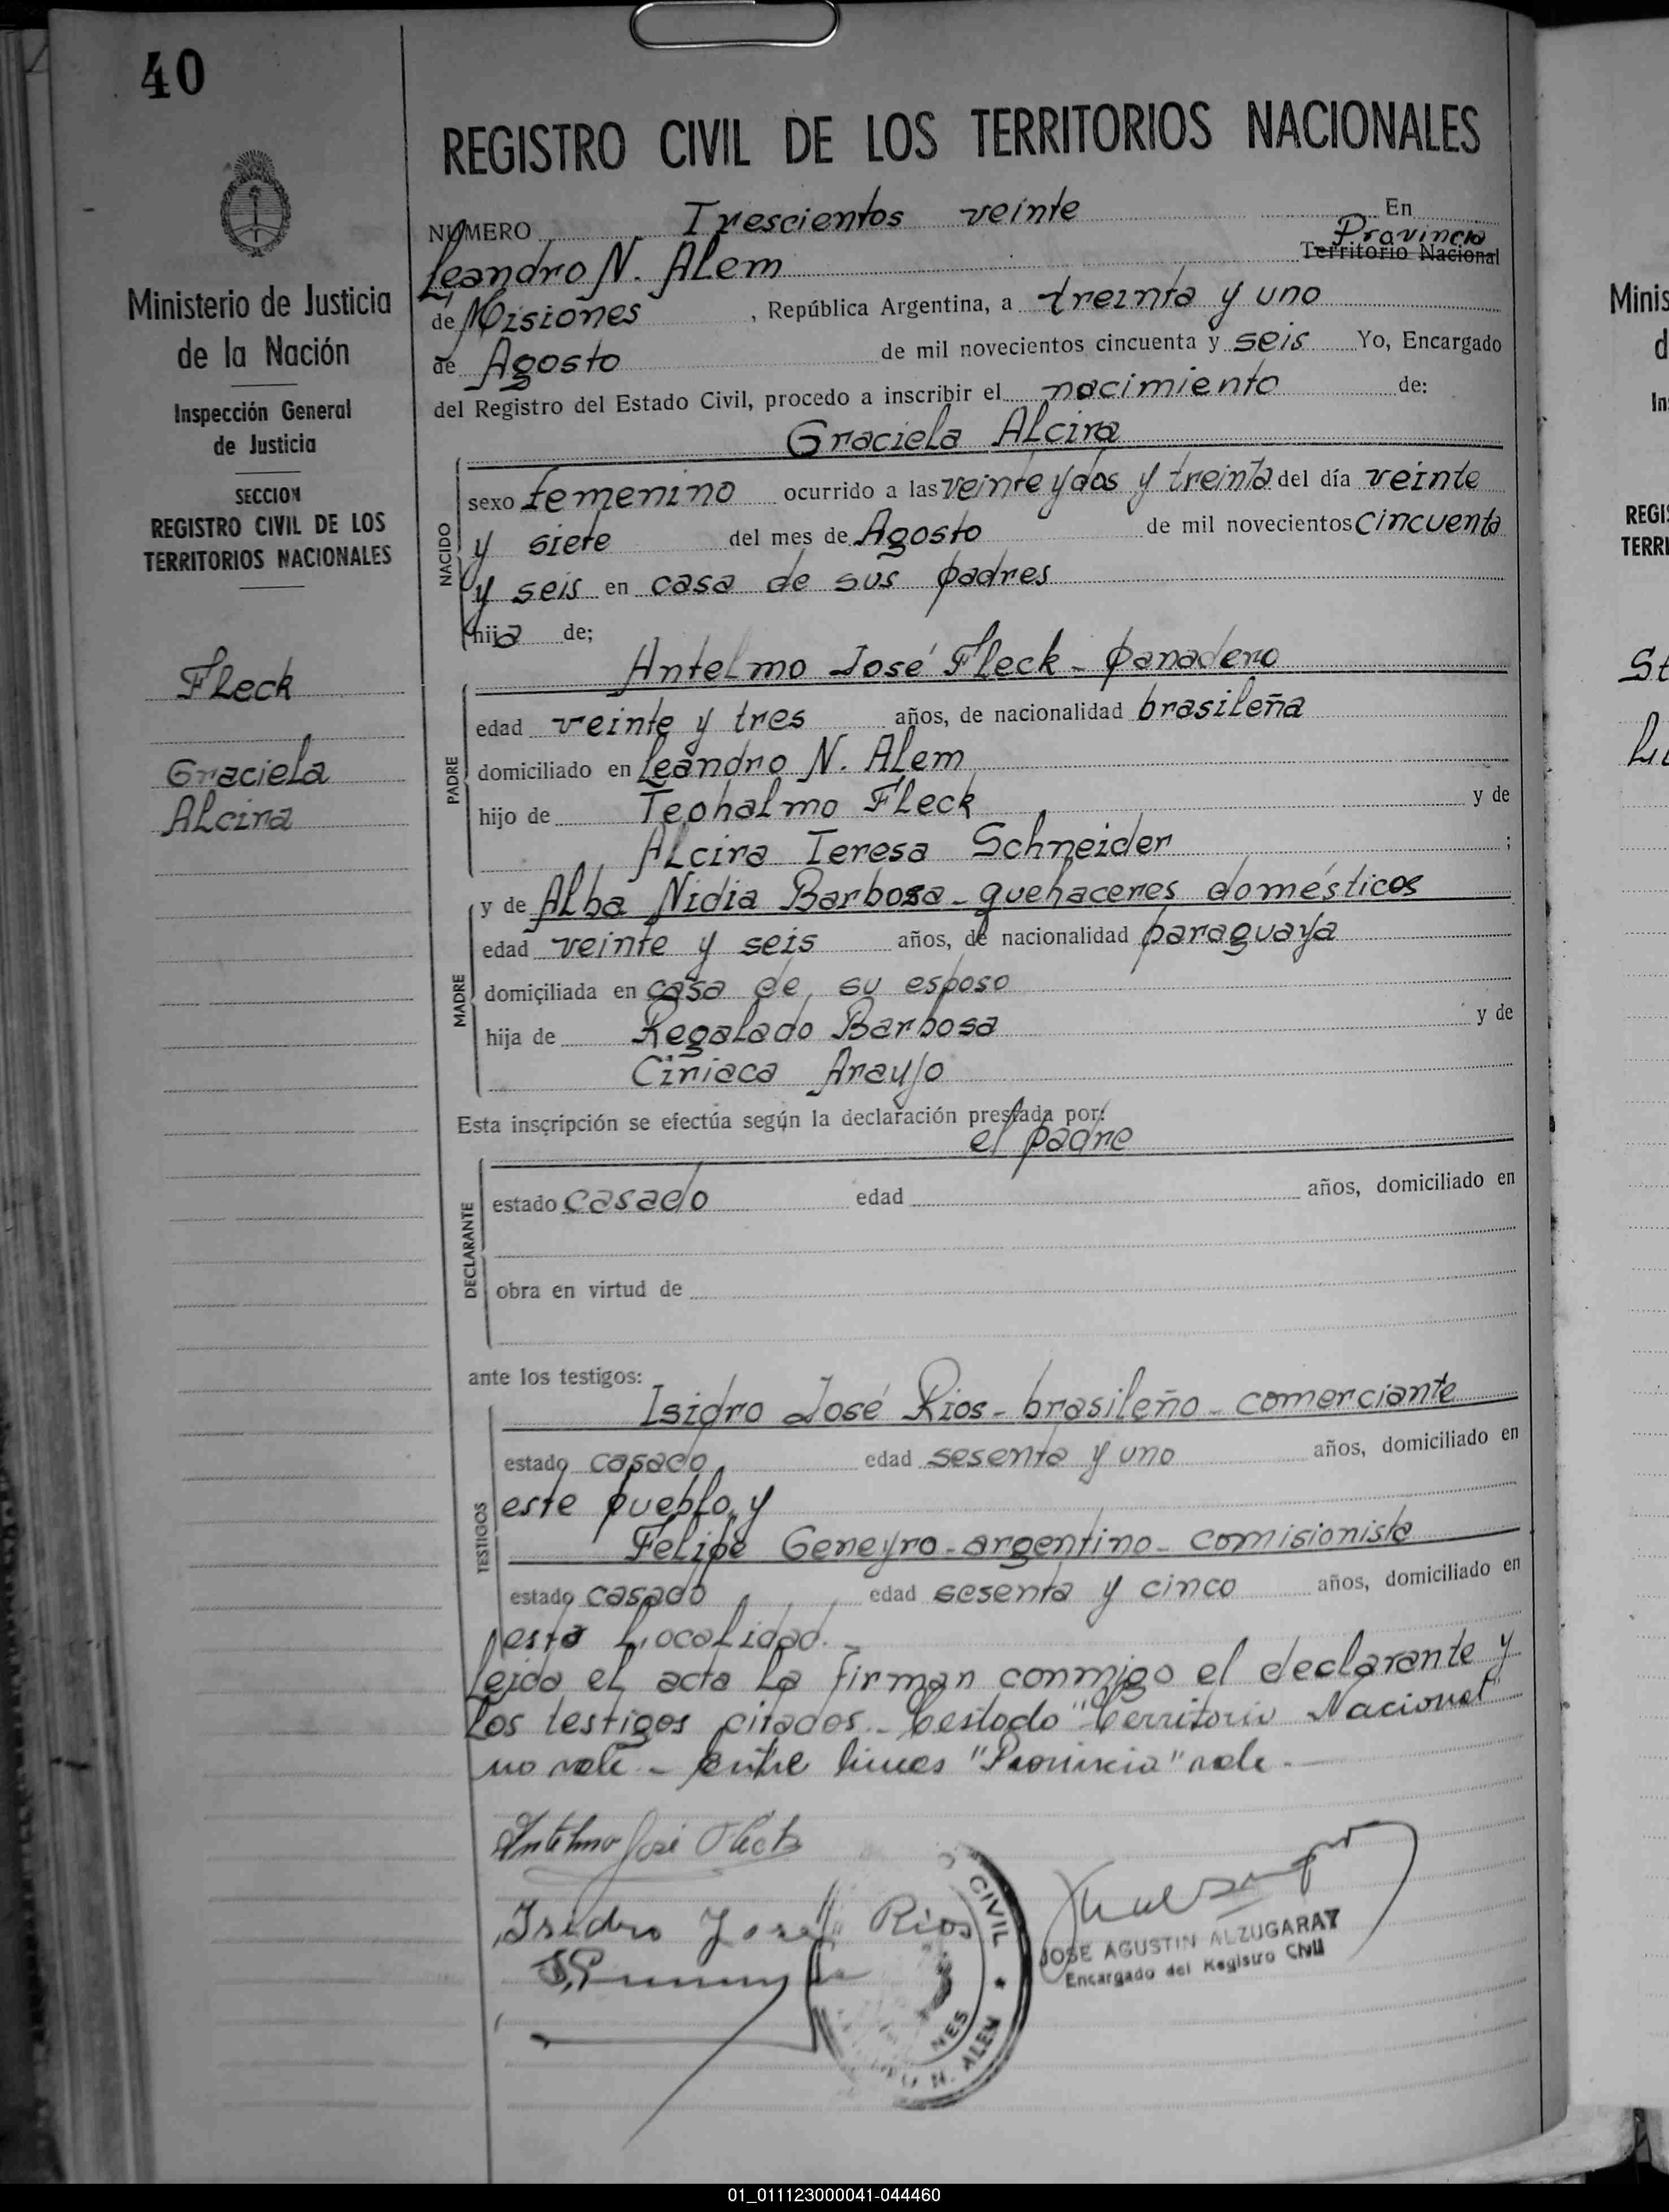 40
Ministerio de Justicia
de la Nación
Inspección General
de Justicia
SECCION
REGISTRO CIVIL DE LOS
TERRITORIOS NACIONALES
Fleck
Graciela
Alcira
REGISTRO CIVIL DE LOS TERRITORIOS NACIONALES
NUMERO Trescientos veinte En
Leandro N. Alem Provincia Territorio Nacional
de Misiones , República Argentina, a treinta y uno
de Agosto de mil novecientos cincuenta y seis Yo, Encargado
del Registro del Estado Civil, procedo a inscribir el nacimiento de:
Graciela Alcira
NACIDO
sexo femenino ocurrido a las veinte y dos y treinta del día veinte
y siete del mes de Agosto de mil novecientos cincuenta
y seis en casa de sus padres
hija de;
Antelmo José Fleck - panadero
PADRE
edad veinte y tres años, de nacionalidad brasileña
domiciliado en Leandro N. Alem
hijo de Teohalmo Fleck y de
Alcira Teresa Schneider ;
y de Alba Nidia Barbosa - quehaceres domésticos
MADRE
edad veinte y seis años, de nacionalidad paraguaya
domiciliada en casa de su esposo
hija de Regalado Barbosa y de
Ciriaca Araujo
Esta inscripción se efectúa según la declaración prestada por:
el padre
DECLARANTE
estado casado edad años, domiciliado en
obra en virtud de
ante los testigos:
Isidro José Rios - brasileño - comerciante
TESTIGOS
estado casado edad sesenta y uno años, domiciliado en
este pueblo, y
Felipe Geneyro - argentino - comisionista
estado casado edad sesenta y cinco años, domiciliado en
esta Localidad. -
Leida el acta la firman conmigo el declarante y
los testigos citados. - Testado "Territorio Nacional"
no vale - Entre lineas "Provincia" vale. -
Antelmo José Fleck
Isidro José Rios
CIVIL
N. ALEM
NES
JOSE AGUSTIN ALZUGARAY
Encargado del Registro Civil
Minis
d
In
REGI
TERRI
St
01_011123000041-044460